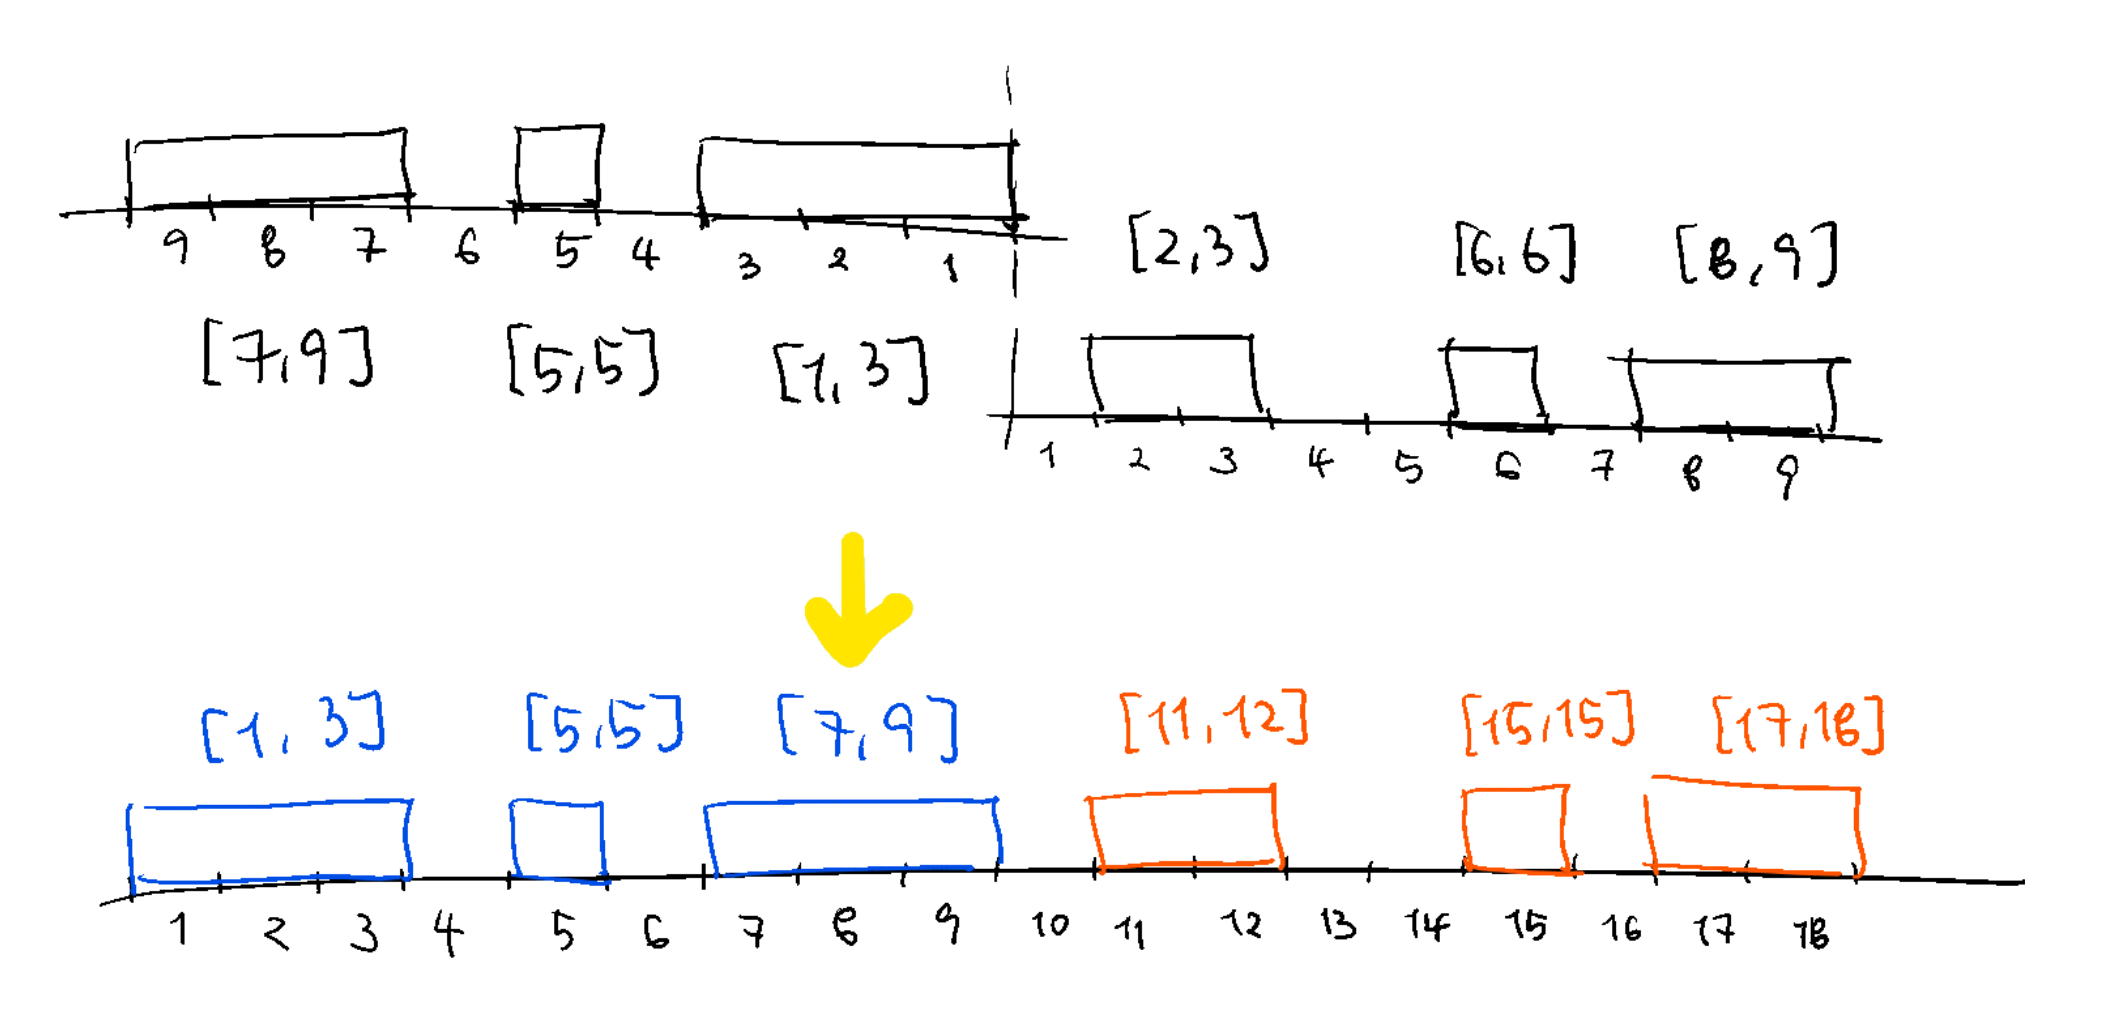 9 8 7 6 5 4 3 2 1
[7,9] [5,5] [1,3]
[2,3] [6,6] [8,9]
1 2 3 4 5 6 7 8 9
[1,3] [5,5] [7,9] [11,12] [15,15] [17,18]
1 2 3 4 5 6 7 8 9 10 11 12 13 14 15 16 17 18